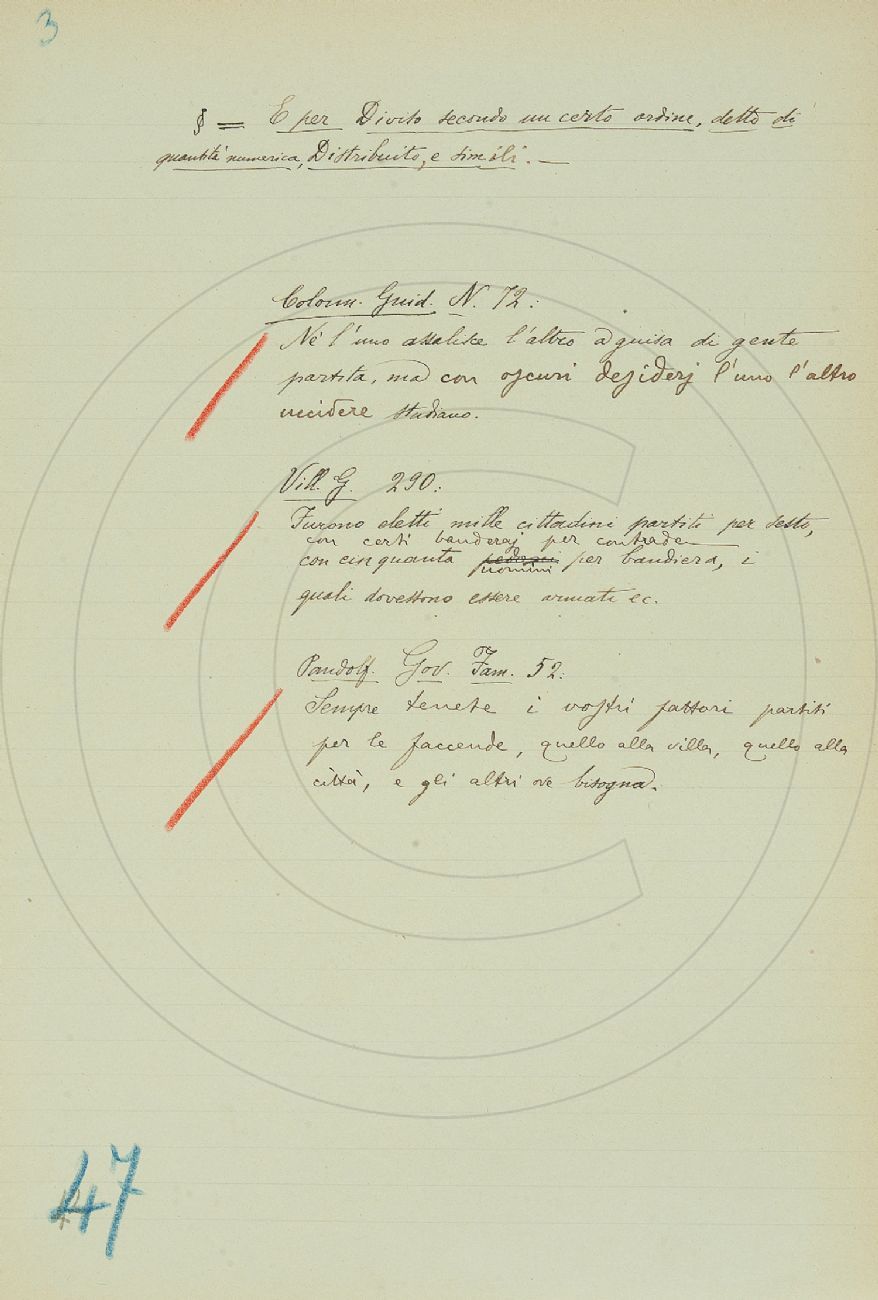 3
§ = E per Divito secondo un certo ordine, detto di
quantità numerica, Distribuito, e simili. —
Colonn. Guid. N. 72:
Nè l'uno assalisce l'altro a guisa di gente
partita, ma con oscuri desiderj l'uno l'altro
uccidere studiano.
Vill. G. 290:
Furono eletti mille cittadini partiti per sesto,
con certi banderaj per contrade
con cinquanta uomini per bandiera, i
quali dovessono essere armati ec.
Pandolf. Gov. Fam. 52:
Sempre tenete i vostri fattori partiti
per le faccende, quello alla villa, quello alla
città, e gli altri ove bisogna.
47